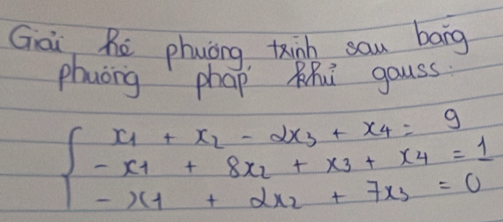 Giải hệ phương trình sau bằng
phương pháp khử gauss:
x1 + x2 - 2x3 + x4 = 9
- x1 + 8x2 + x3 + x4 = 1
- x1 + 2x2 + 7x3 = 0